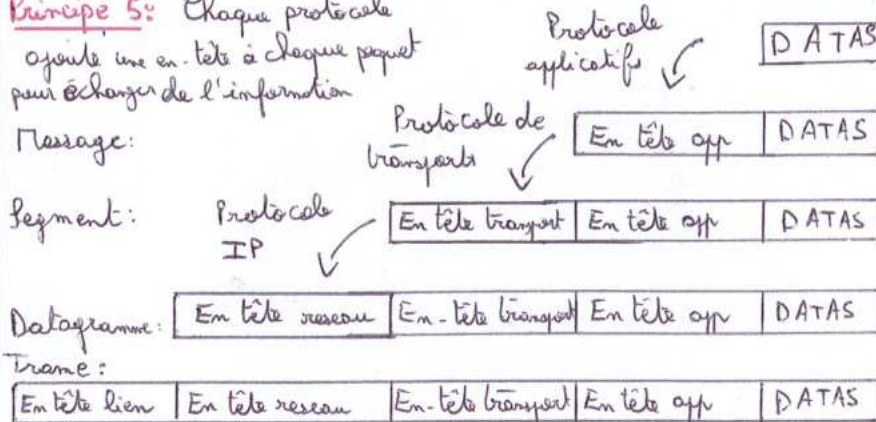 Principe 5: Chaque protocole
ajoute une en-tête à chaque paquet
pour échanger de l'information
Protocole
applicatifs
DATAS
Message:
Protocole de
transports
En tête app | DATAS
Segment:
Protocole
IP
En tête transport | En tête app | DATAS
Datagramme: En tête reseau | En-tête transport | En tête app | DATAS
Trame:
En tête lien | En tête reseau | En-tête transport | En tête app | DATAS